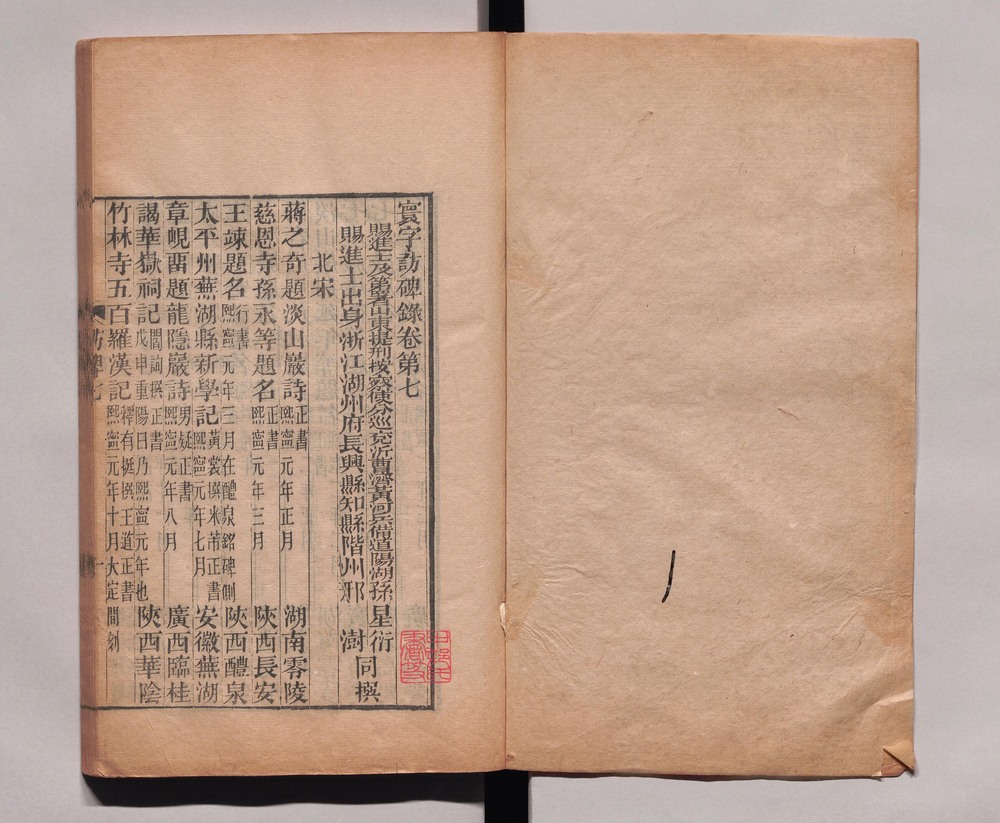 寰宇訪碑錄卷第七
賜進士及第署山東提刑按察使分巡兗沂曹濟黃河兵備道陽湖孫 星衍
賜進士出身浙江湖州府長興縣知縣階州邢 澍
同撰
北宋
蔣之奇題淡山巖詩 正書 熙寧元年正月 湖南零陵
慈恩寺孫永等題名 正書 熙寧元年三月 陝西長安
王竦題名 行書 熙寧元年三月在醴泉銘碑側 陝西醴泉
太平州蕪湖縣新學記 黃裳撰米芾正書 熙寧元年七月 安徽蕪湖
章峴畱題龍隱巖詩 男疑正書 熙寧元年八月 廣西臨桂
謁華嶽祠記 閻詢撰正書 戊申重陽日乃熙寧元年也 陝西華陰
竹林寺五百羅漢記 釋有挺撰王道正書 熙寧元年十月大定間刻
訪碑七
一